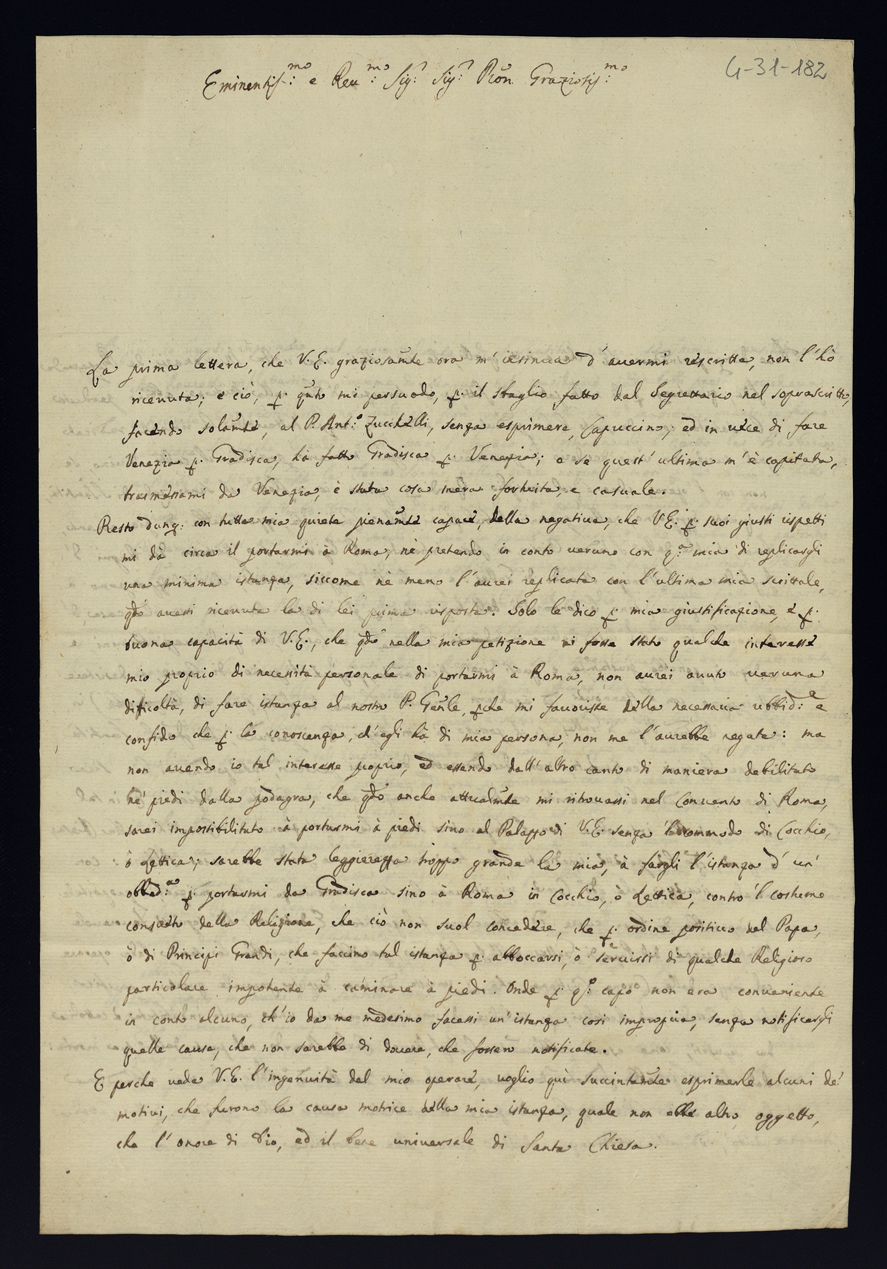 4-31-182
Eminentiss:mo e Reu:mo Sig:r Sig:r Pron̄ Graziosiss:mo
La prima lettera, che V. E. graziosam̄te ora m' insinua d' auermi rescritta, non l' hò
riceuuta; e ciò, p. qūto mi persuado, p. il sbaglio fatto dal Segrettario nel soprascritto,
facendo solam̄te, al P. Ant:o Zucchelli, senza esprimere, Capuccino; ed in uece di fare
Venezia p. Gradisca, hà fatto Gradisca p. Venezia; e se quest' ultima m' è capitata,
trasmessami da Venezia, è stata cosa mera fortuita, e casuale.
Resto dunq: con tutta mia quiete pienam̄te capace, della negatiua, che V. E. p. suoi giusti rispetti
mi dà circa il portarmi à Roma; nè pretendo in conto ueruno con q:a mia di replicargli
una minima istanza, siccome nè meno l' aurei replicata con l' ultima mia scrittale,
qdo auessi riceuuta la di lei prima risposta. Solo le dico p. mia giustificazione, e p.
buona capacità di V. E., che qdo nella mia petizione ui fosse stato qualche interesse
mio proprio di necessità personale di portarmi à Roma, non aurei auuto ueruna
difficoltà, di fare istanza al nostro P. Gen̄le, pche mi fauorisse della necessaria ubbid:e e
confido che p. la conoscenza, ch' egli hà di mia persona, non me l' aurebbe negata: ma
non auendo io tal interesse proprio, ed essendo dall' altro canto di maniera debilitato
ne' piedi dalla podagra, che qdo anche attualm̄te mi ritrouassi nel Conuento di Roma,
sarei impossibilitato à portarmi à piedi sino al Palazzo di V. E. senza l' incommodo di Cocchio,
ò Lettica; sarebbe stata leggierezza troppo grande la mia, à fargli l' istanza d' un'
obbed:a p. portarmi da Gradisca sino à Roma in Cocchio, ò Lettica, contro 'l costume
consueto della Religione, che ciò non suol concedere, che p. ordine positiuo del Papa,
ò di Principi Grandi, che faccino tal istanza p. abboccarsi, ò seruirsi di qualche Religioso
particolare impotente à caminare à piedi. Onde p. q:o capo non era conueniente
in conto alcuno, ch' io da me medesimo facessi un' istanza così impropria, senza notificargli
quelle cause, che non sarebbe di douere, che fossero notificate.
E perche ueda V. E. l' ingenuità del mio operare, uoglio quì succintam̄te esprimerle alcuni de'
motiui, che furono la causa motrice della mia istanza, quale non ebbe altro oggetto,
che l' onore di Dio, ed il bene uniuersale di Santa Chiesa.